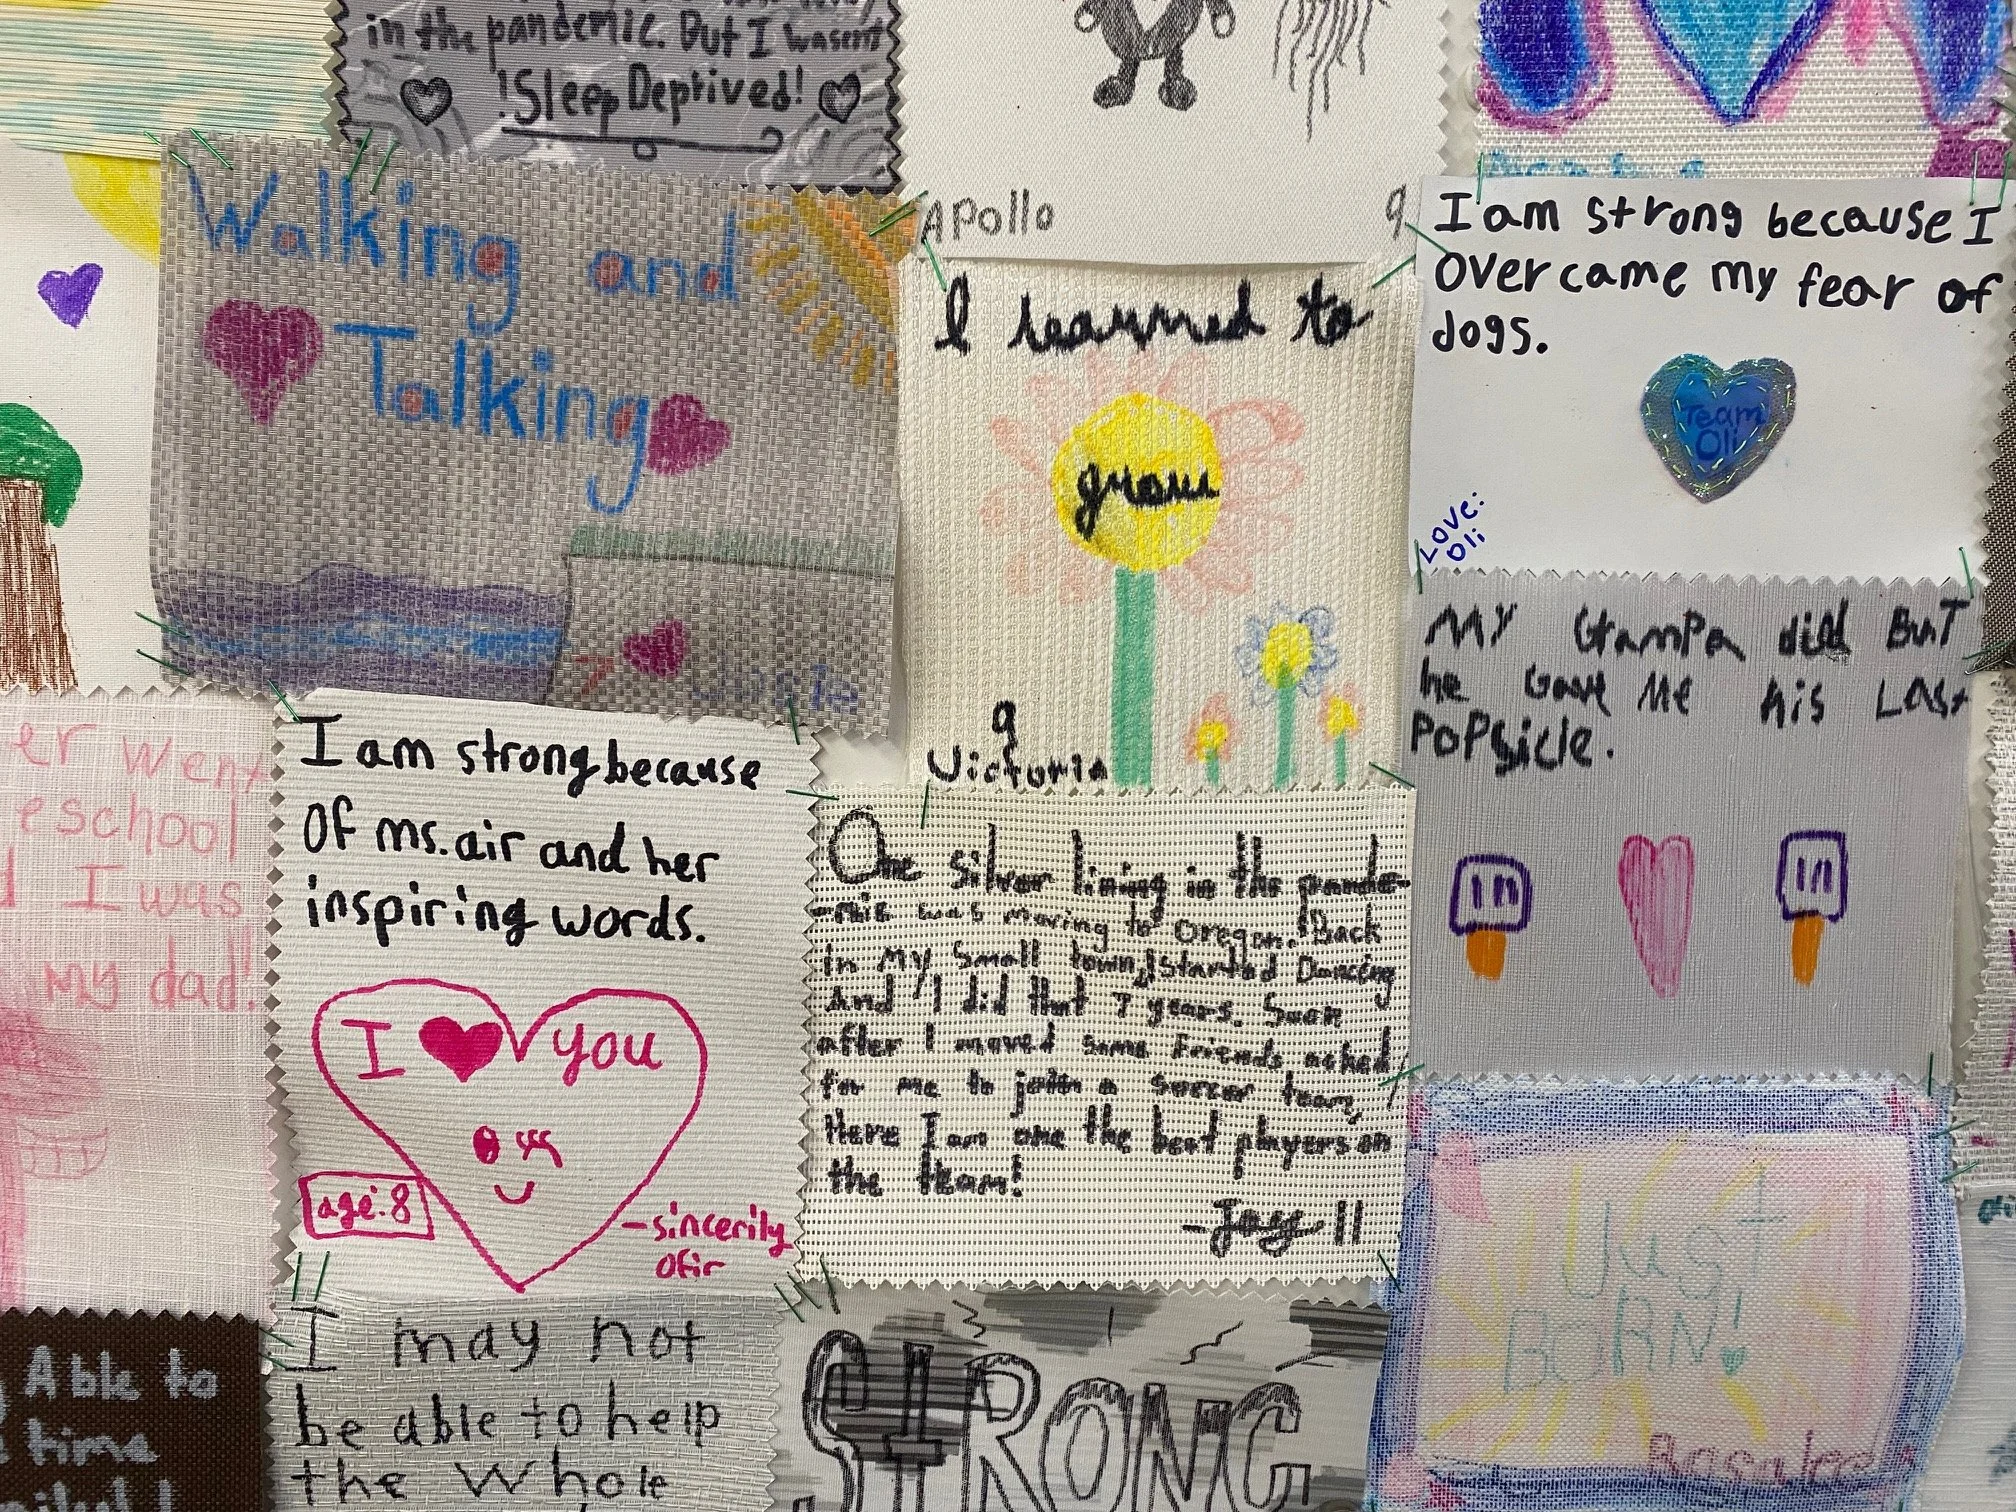 in the pandemic. But I wasent
!Sleep Deprived!
Apollo 9
Walking and
Talking
I learned to
grow
9
Victoria
I am strong because I
overcame my fear of
dogs.
Team
Oli
Love:
Oli
My Grampa did But
he Gave Me his Last
PoPsicle.
er went
eschool
I was
my dad!
I am strong because
Of ms. air and her
inspiring words.
I you
age: 8
-sincerily
Ofir
One silver lining in the pande-
-mic was moving to Oregon. Back
in my small town, I started Dancing
And I did that 7 years. Soon
after I moved some Friends asked
for me to join a soccer team,
Here I am one the best players on
the team!
11
Just
BORN!
Able to
time
I may not
be able to help
the whole
STRONG